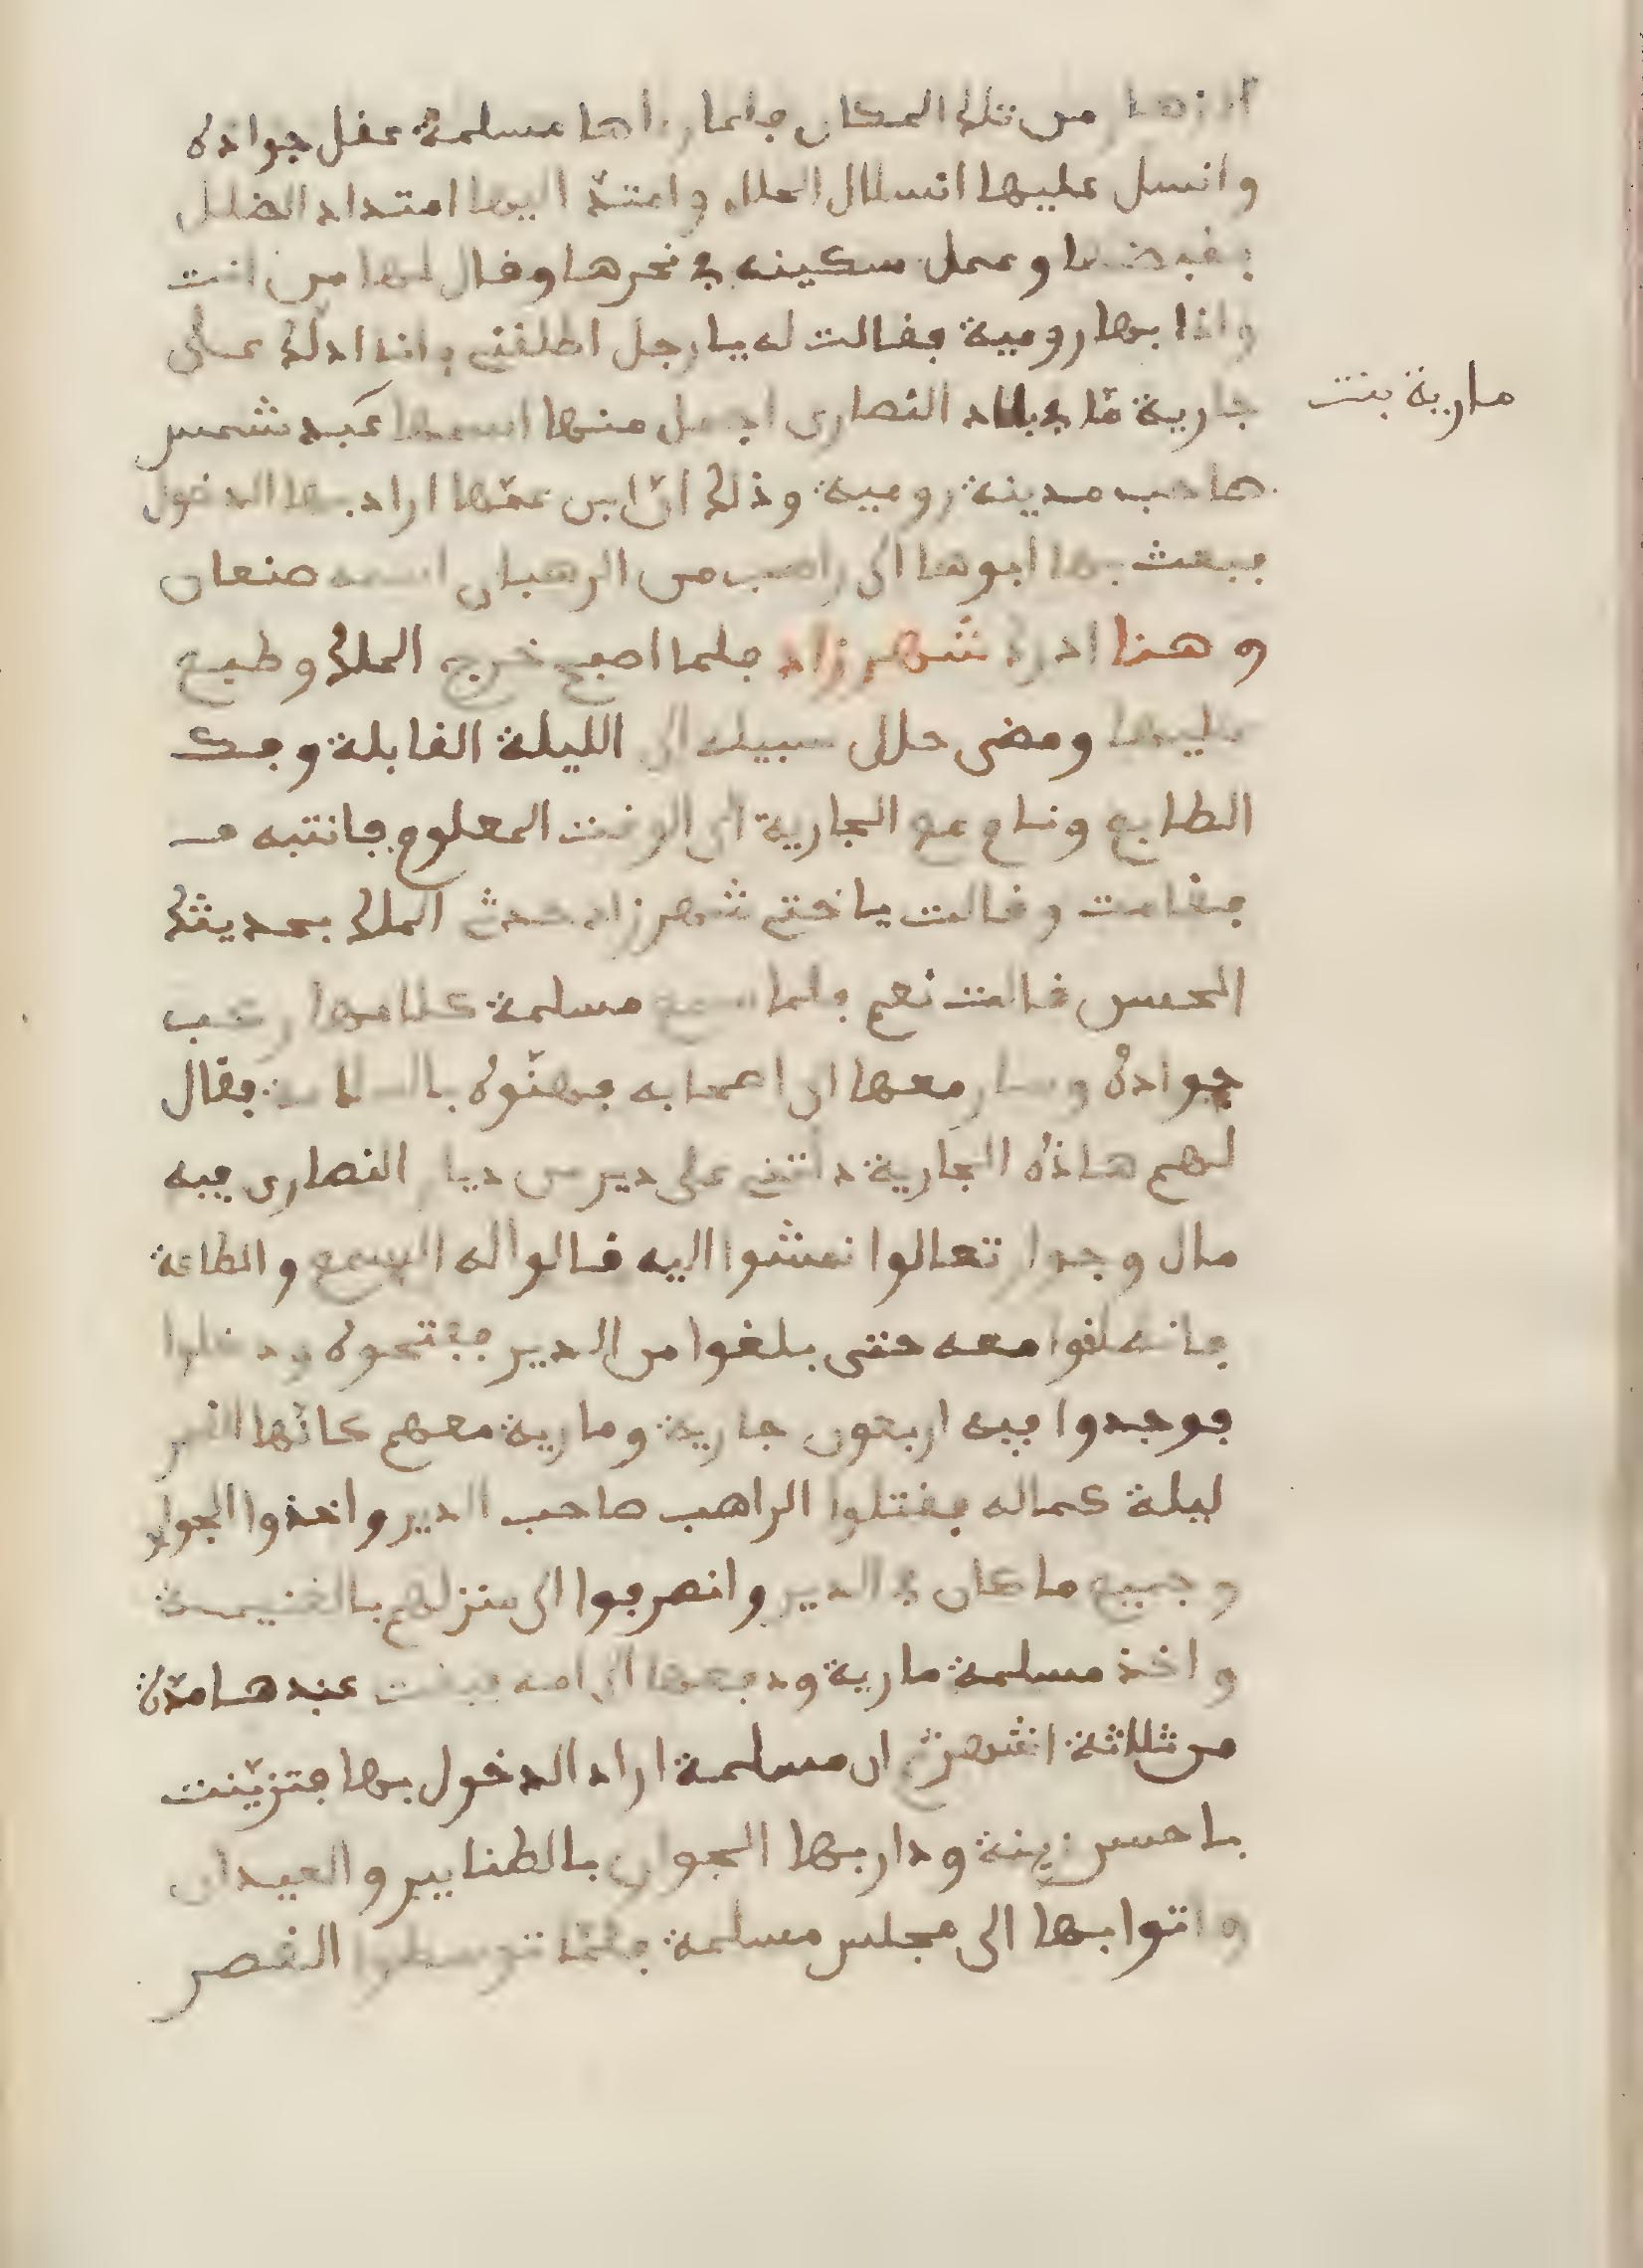 من تلك المكان فلما رءاها مسلمة عفل جواده
وانسل عليها انسلال الظل وامتدّ اليها امتداد الظلل
فقبضها وعمل سكينه في نحرها وقال لها من انت
واذا بها رومية فقالت له يا رجل اطلقني وانا ادلّك على
جارية مّا في بلاد النصارى اجمل منها اسمها عبد شمس
مارية بنت
صاحب مدينة رومية وذلك انّ ابن عمّها اراد بها الدخول
فبعث بها ابوها الى راهب من الرهبان اسمه صنعان
وهنا ادرك شهرزاد فلما اصبح خرج الملك وطبع
عليها ومضى حال سبيله الى الليلة القابلة وفك
الطابع ونام مع الجارية الى الوقت المعلوم فانتبه مـ
فقامت وقالت ياختي شهرزاد حدث الملك بحديثك
الحسن قالت نعم فلما سمع مسلمة كلامها ركب
جواده وسار معها الى اصحابه فهنّوه بالسلامة فقال
لهم هاذه الجارية دلتني على دير من ديار النصارى فيه
مال وجوار تعالوا نمشوا اليه قالوا له السمع والطاعة
فانطلقوا معه حتى بلغوا من الدير ففتحوه ودخلوا
فوجدوا فيه اربعون جارية ومارية معهم كانّها القمر
ليلة كماله فقتلوا الراهب صاحب الدير واخذوا الجوار
وجميع ما كان في الدير وانصرفوا الى منزلهم بالغنيمة
واخذ مسلمة مارية ودفعها الى امه فبقت عندها مدّة
من ثلاثة اشهر ثم ان مسلمة اراد الدخول بها فتزيّنت
باحسن زينة ودار بها الجوار بالطنابير والعيدان
واتوا بها الى مجلس مسلمة فلمّا توسطوا القصر